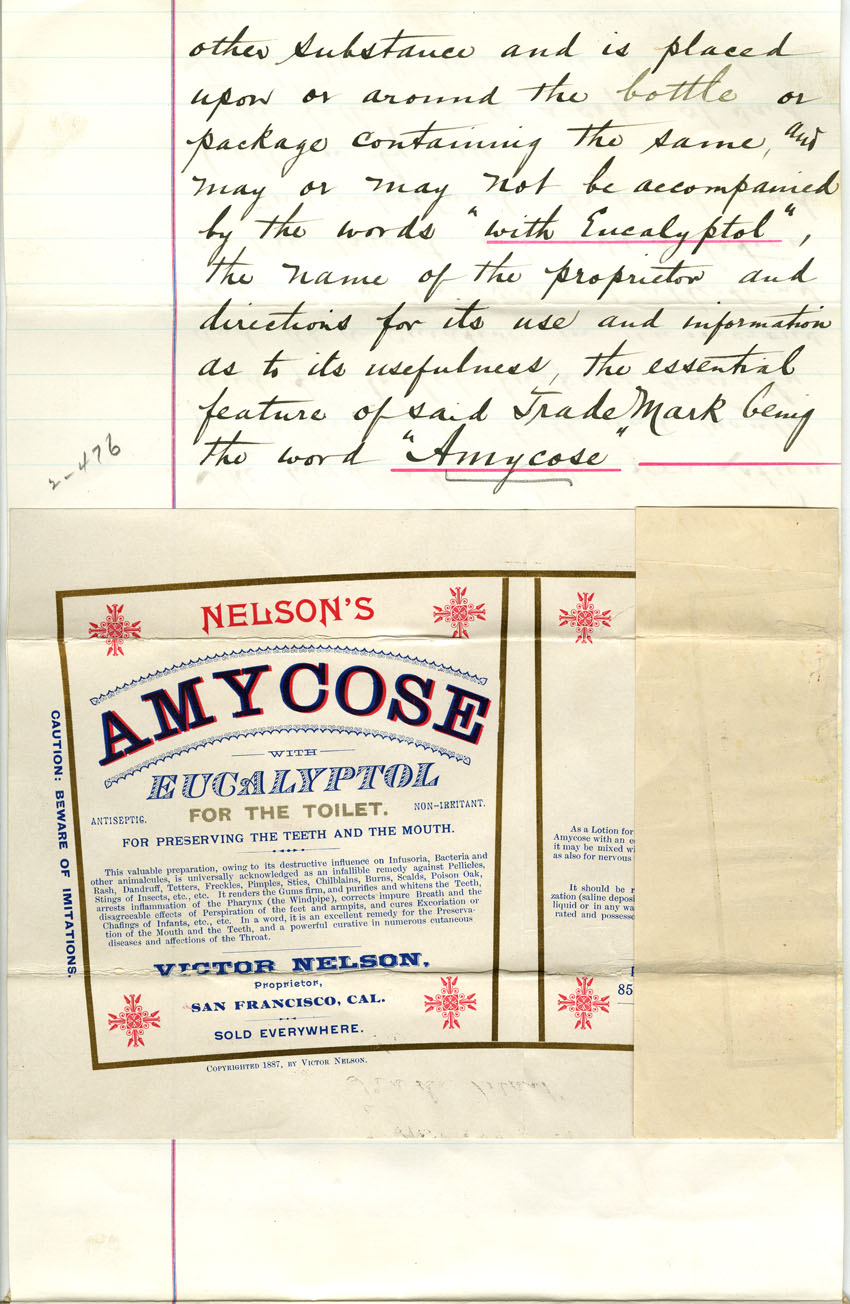 other substance and is placed
upon or around the bottle or
package containing the same, and
may or may not be accompanied
by the words "with Eucalyptol",
the name of the proprietor and
directions for its use and information
as to its usefulness, the essential
feature of said Trade Mark being
the word "Amycose"
2-476
NELSON'S
AMYCOSE
WITH
EUCALYPTOL
ANTISEPTIC. FOR THE TOILET. NON-IRRITANT.
FOR PRESERVING THE TEETH AND THE MOUTH.
This valuable preparation, owing to its destructive influence on Infusoria, Bacteria and
other animalcules, is universally acknowledged as an infallible remedy against Pellicles,
Rash, Dandruff, Tetters, Freckles, Pimples, Sties, Chilblains, Burns, Scalds, Poison Oak,
Stings of Insects, etc., etc. It renders the Gums firm, and purifies and whitens the Teeth,
arrests inflammation of the Pharynx (the Windpipe), corrects impure Breath and the
disagreeable effects of Perspiration of the feet and armpits, and cures Excoriation or
Chafings of Infants, etc., etc. In a word, it is an excellent remedy for the Preserva-
tion of the Mouth and the Teeth, and a powerful curative in numerous cutaneous
diseases and affections of the Throat.
VICTOR NELSON,
Proprietor,
SAN FRANCISCO, CAL.
SOLD EVERYWHERE.
COPYRIGHTED 1887, BY VICTOR NELSON.
CAUTION: BEWARE OF IMITATIONS.
As a Lotion for
Amycose with an
it may be mixed
as also for nervous
It should be
zation (saline
liquid or in any
rated and
85